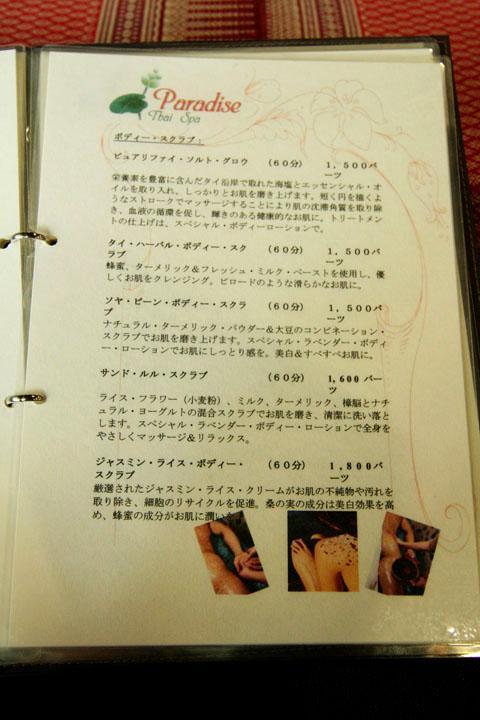 Paradise
Thai Spa
ボディー・スクラブ：
ピュアリファイ・ソルト・グロウ （60分） 1,500バ
ーツ
栄養素を豊富に含んだタイ沿岸で取れた海塩とエッセンシャル・オ
イルを取り入れ、しっかりとお肌を磨き上げます。短く円を描くよ
うなストロークでマッサージすることにより肌の沈滞角質を取り除
き、血液の循環を促し、輝きのある健康的なお肌に。トリートメン
トの仕上げは、スペシャル・ボディーローションで。
タイ・ハーバル・ボディー・スク （60分） 1,500バ
ラブ ーツ
蜂蜜、ターメリック＆フレッシュ・ミルク・ペーストを使用し、優
しくお肌をクレンジング。ビロードのような滑らかなお肌に。
ソヤ・ビーン・ボディー・スクラ （60分） 1,500バ
ブ ーツ
ナチュラル・ターメリック・パウダー＆大豆のコンビネーション・
スクラブでお肌を磨き上げます。スペシャル・ラベンダー・ボディ
ー・ローションでお肌にしっとり感を。美白＆すべすべお肌に。
サンド・ルル・スクラブ （60分） 1,600バーツ
ライス・フラワー（小麦粉）、ミルク、ターメリック、樟脳とナチ
ュラル・ヨーグルトの混合スクラブでお肌を磨き、清潔に洗い落と
します。スペシャル・ラベンダー・ボディー・ローションで全身を
やさしくマッサージ＆リラックス。
ジャスミン・ライス・ボディー・ （60分） 1,800バ
スクラブ ーツ
厳選されたジャスミン・ライス・クリームがお肌の不純物や汚れを
取り除き、細胞のリサイクルを促進。桑の実の成分は美白効果を高
め、蜂蜜の成分がお肌に潤いを